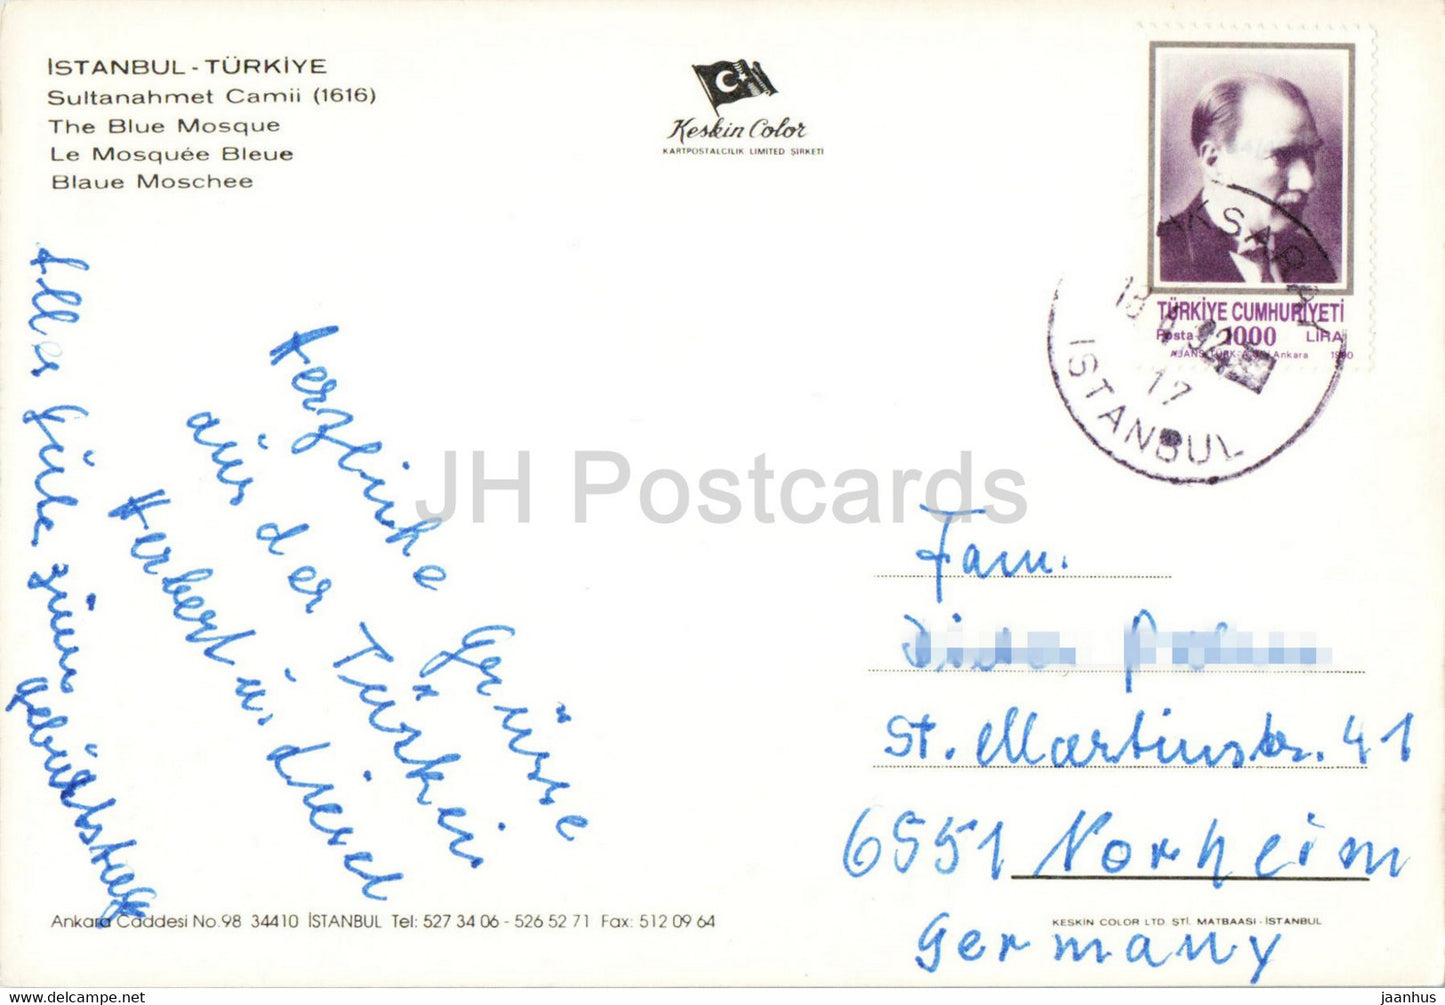 İSTANBUL - TÜRKİYE
Sultanahmet Camii (1616)
The Blue Mosque
Le Mosquée Bleue
Blaue Moschee
Keskin Color
KARTPOSTALCILIK LIMITED ŞIRKETI
TÜRKİYE CUMHURİYETİ
Posta 1000 LİRA
AJANS TÜRK Ankara 1990
AKSARAY
92
17
ISTANBUL
Herzliche Grüsse
aus der Türkei
Herbert u. Liesel
Alles Gute zum
Geburtstag
JH Postcards
Fam.
St. Martinstr. 41
6551 Norheim
Germany
Ankara Caddesi No.98 34410 İSTANBUL Tel: 527 34 06 - 526 52 71 Fax: 512 09 64
KESKIN COLOR LTD. ŞTİ. MATBAASI - İSTANBUL
www.delcampe.net
jaanhus